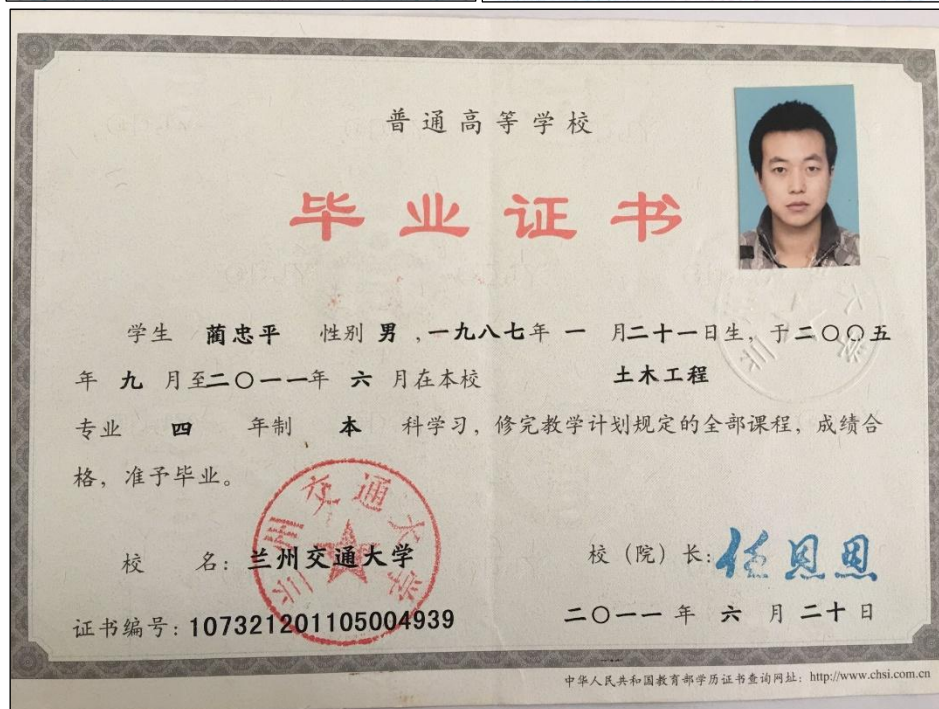 普通高等学校
毕业证书
学生 蔺忠平 性别 男 ,一九八七年 一 月二十一日生, 于二〇〇五
年 九 月至二〇一一年 六 月在本校 土木工程
专业 四 年制 本 科学习, 修完教学计划规定的全部课程, 成绩合
格, 准予毕业。
兰州交通大学
校 名: 兰州交通大学
校 (院) 长: 任恩恩
证书编号: 107321201105004939
二〇一一 年 六 月 二十 日
中华人民共和国教育部学历证书查询网址: http://www.chsi.com.cn